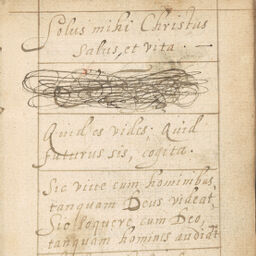 Solus mihi Christus
salus, et vita. —
Quid es vides: Quid
futurus sis, cogita.
Sic vive cum hominibus,
tanquam Deus videat,
Sic loquere cum Deo,
tanquam homines audiāt